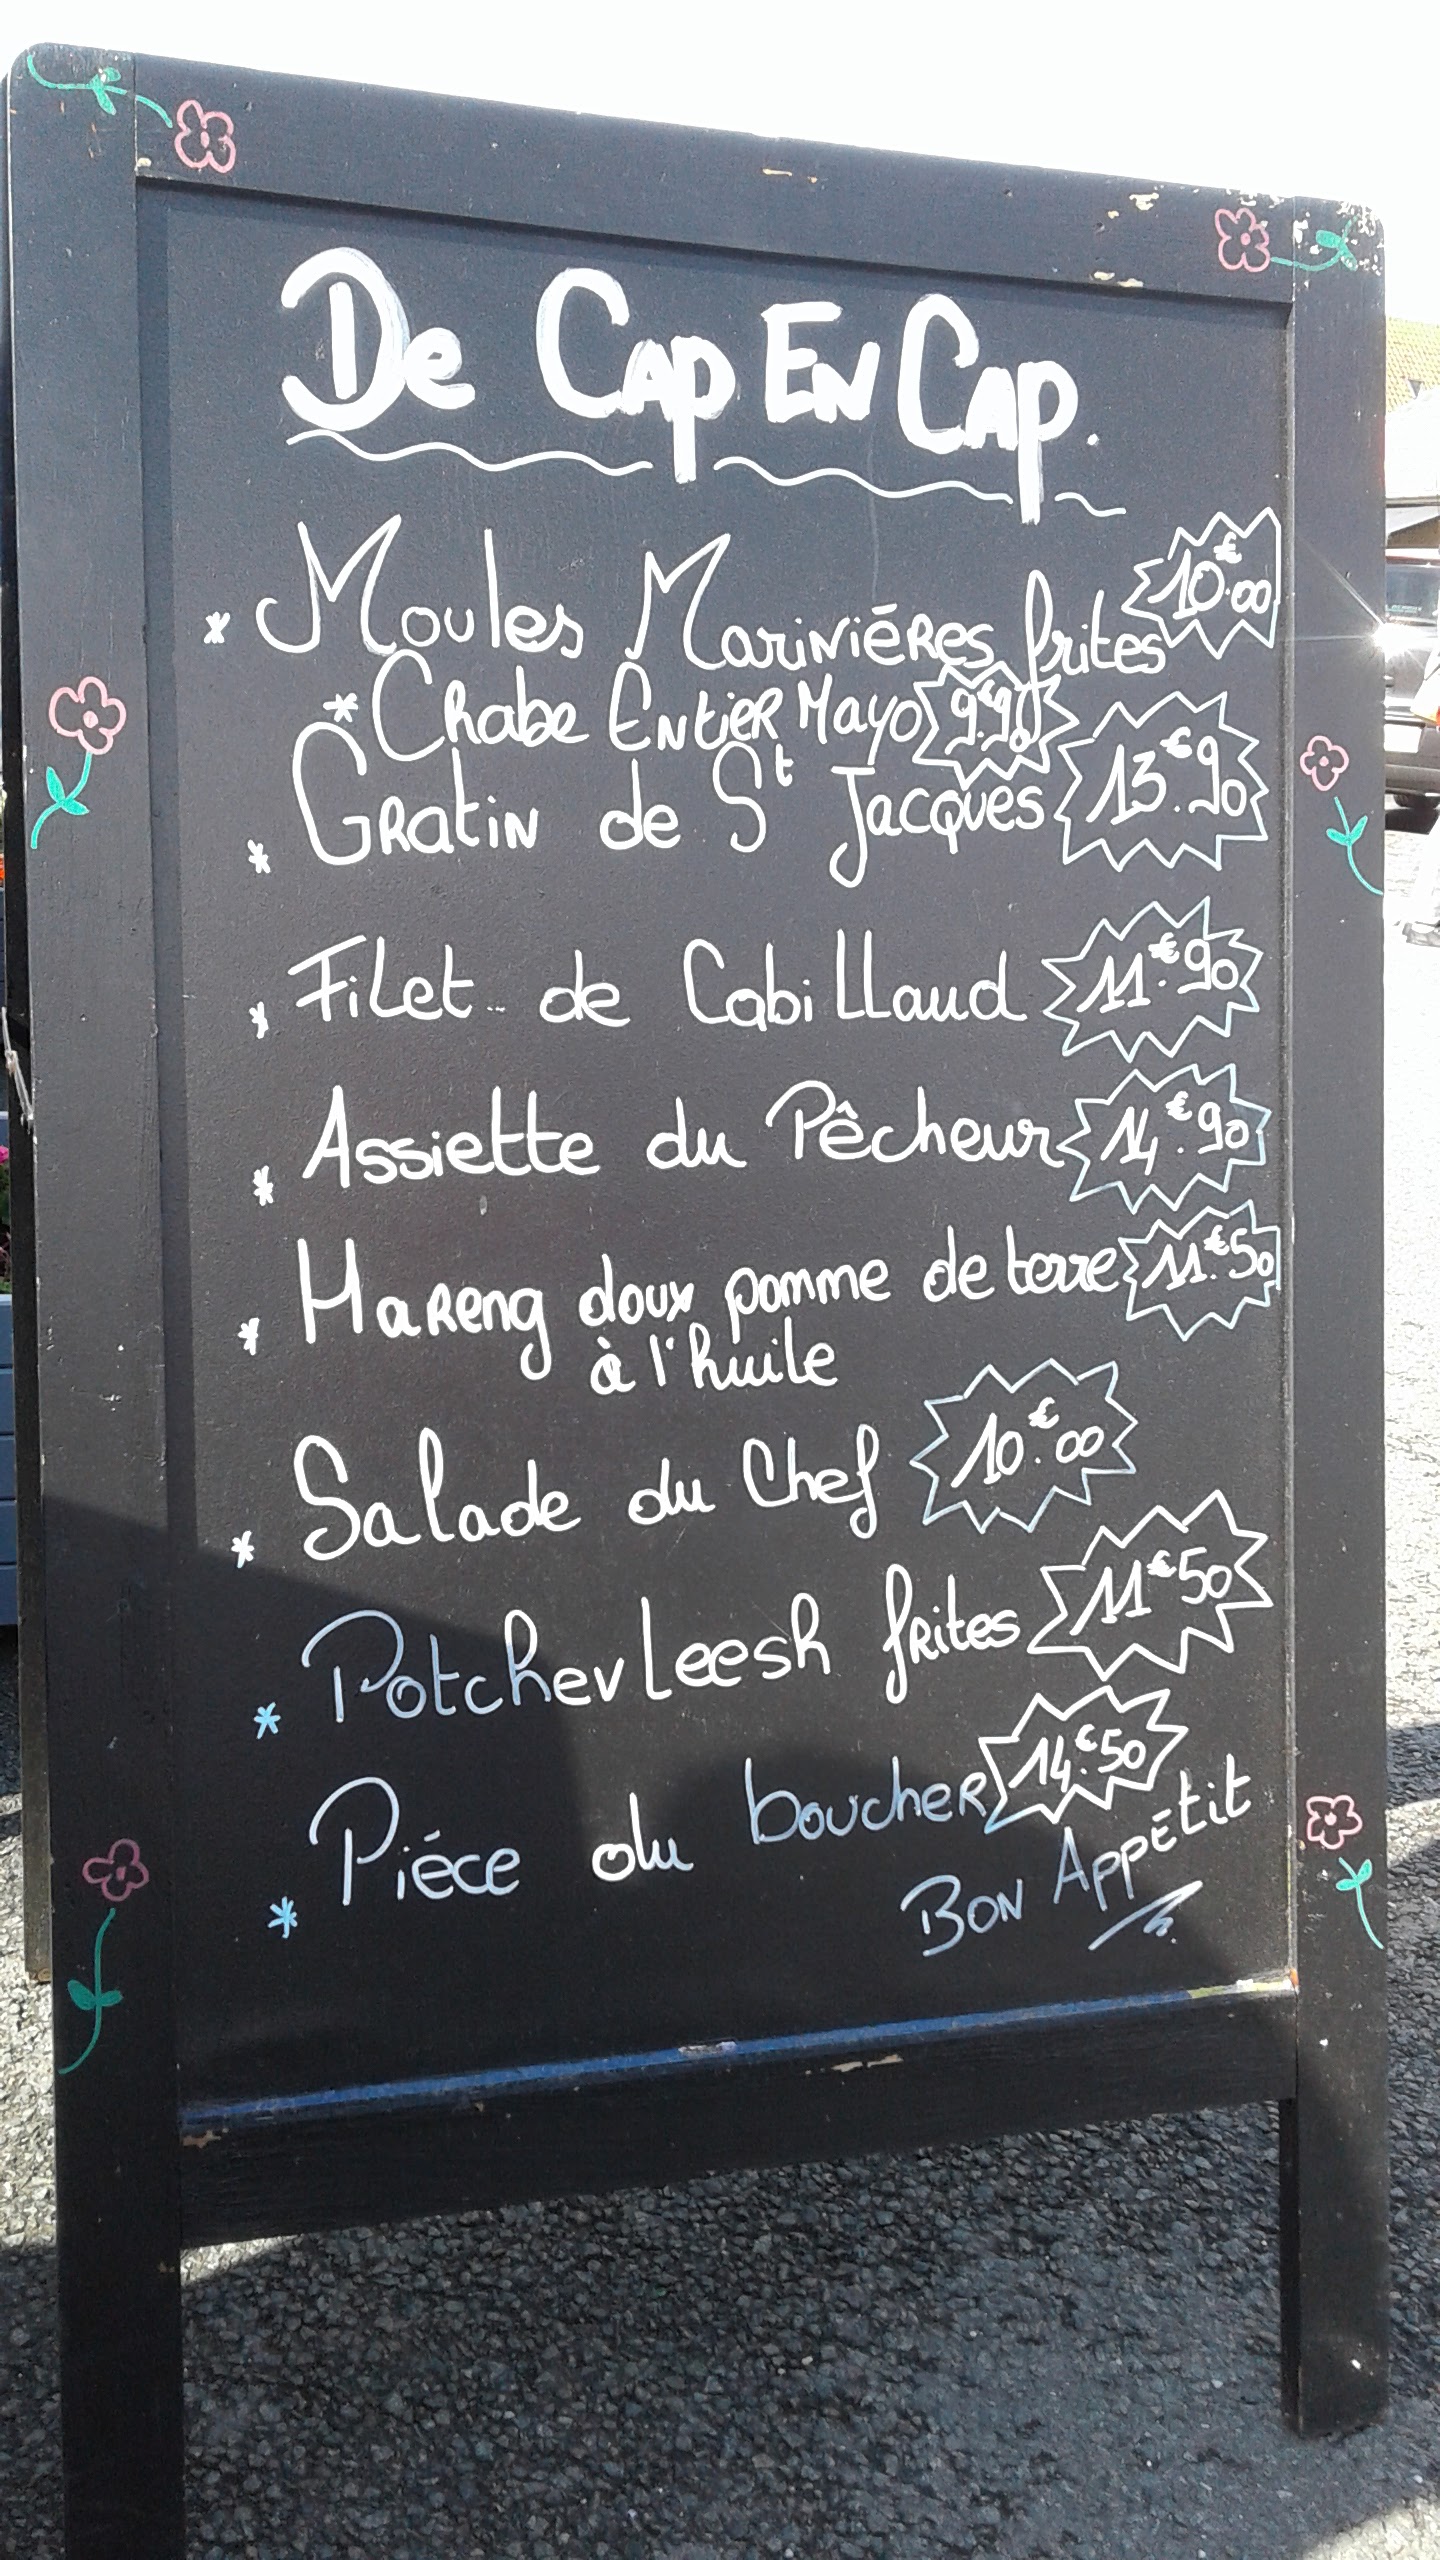 De Cap En Cap.
* Moules Mariniéres frites 10.€00
* Chabe Entier Mayo 9.€90
* Gratin de St Jacques 13.€90
* Filet de Cabillaud 11.€90
* Assiette du Pêcheur 14.€90
* Hareng doux pomme de terre 11.€50
à l'huile
* Salade du Chef 10.€00
* Potchevleesh frites 11€50
* Piéce du boucher 14.€50
Bon Appétit